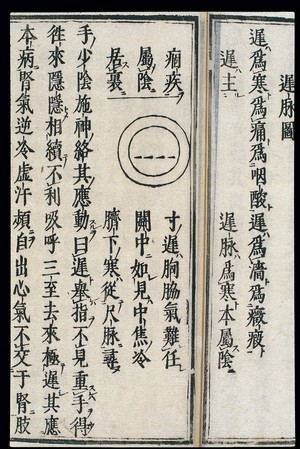 遲脉圖
遲爲寒爲痛爲咽酸遲爲濇爲癥瘕
遲主　遲脉爲寒本屬陰
寸遲胸脇氣難任
關中如見中焦冷
臍下寒從尺脉尋
痼疾
屬陰
居裏
手少陰施神絡其應動曰遲舉指不見重手得
徃來隱隱相續不利吸呼三至去來極遲其應
本病腎氣逆冷虛汗頻自出心氣不交于腎肢